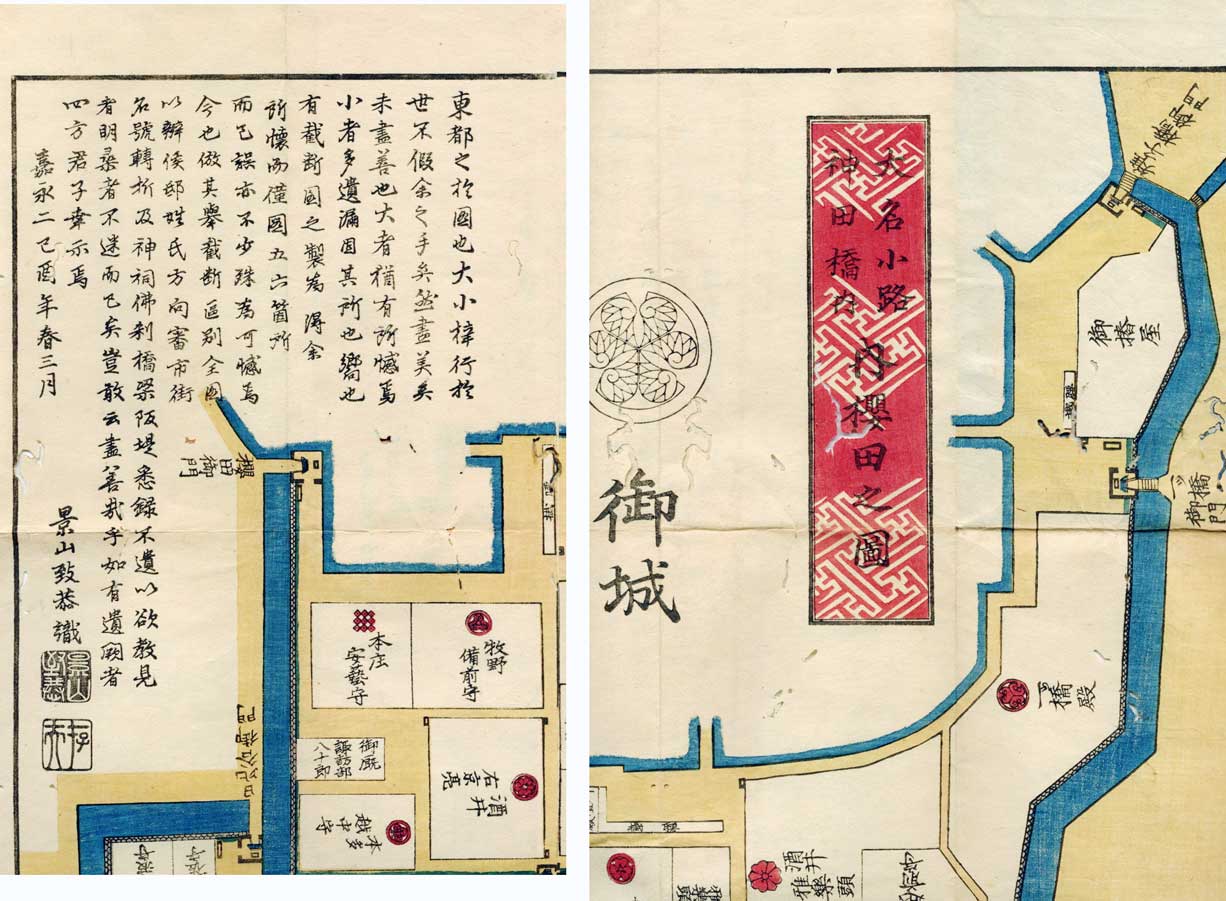 東都之於圖也大小梓行於
世不假余之手矣然盡美矣
未盡善也大者猶有所憾焉
小者多遺漏因其所也嚮也
有截斷圖之製為得余
所懐而僅圖五六箇所
而已誤亦不少殊為可憾焉
今也倣其舉截斷區別全圖
以辨侯邸姓氏方向審市街
名號轉折及神祠佛刹橋梁阪堤悉録不遺以欲教見
者明桑者不迷而已矣豈敢云盡善哉乎如有遺闕者
四方君子幸示焉
嘉永二己酉年春三月
景山致恭識
櫻田御門
日比谷御門
本庄
安藝守
牧野
備前守
御厩
諏訪部
八十郎
酒井
右京亮
本多
越中守
大名小路
神田橋内
内櫻田之圖
御城
雉子橋御門
御搗屋
一ツ橋御門
一橋殿
酒井
雅樂頭